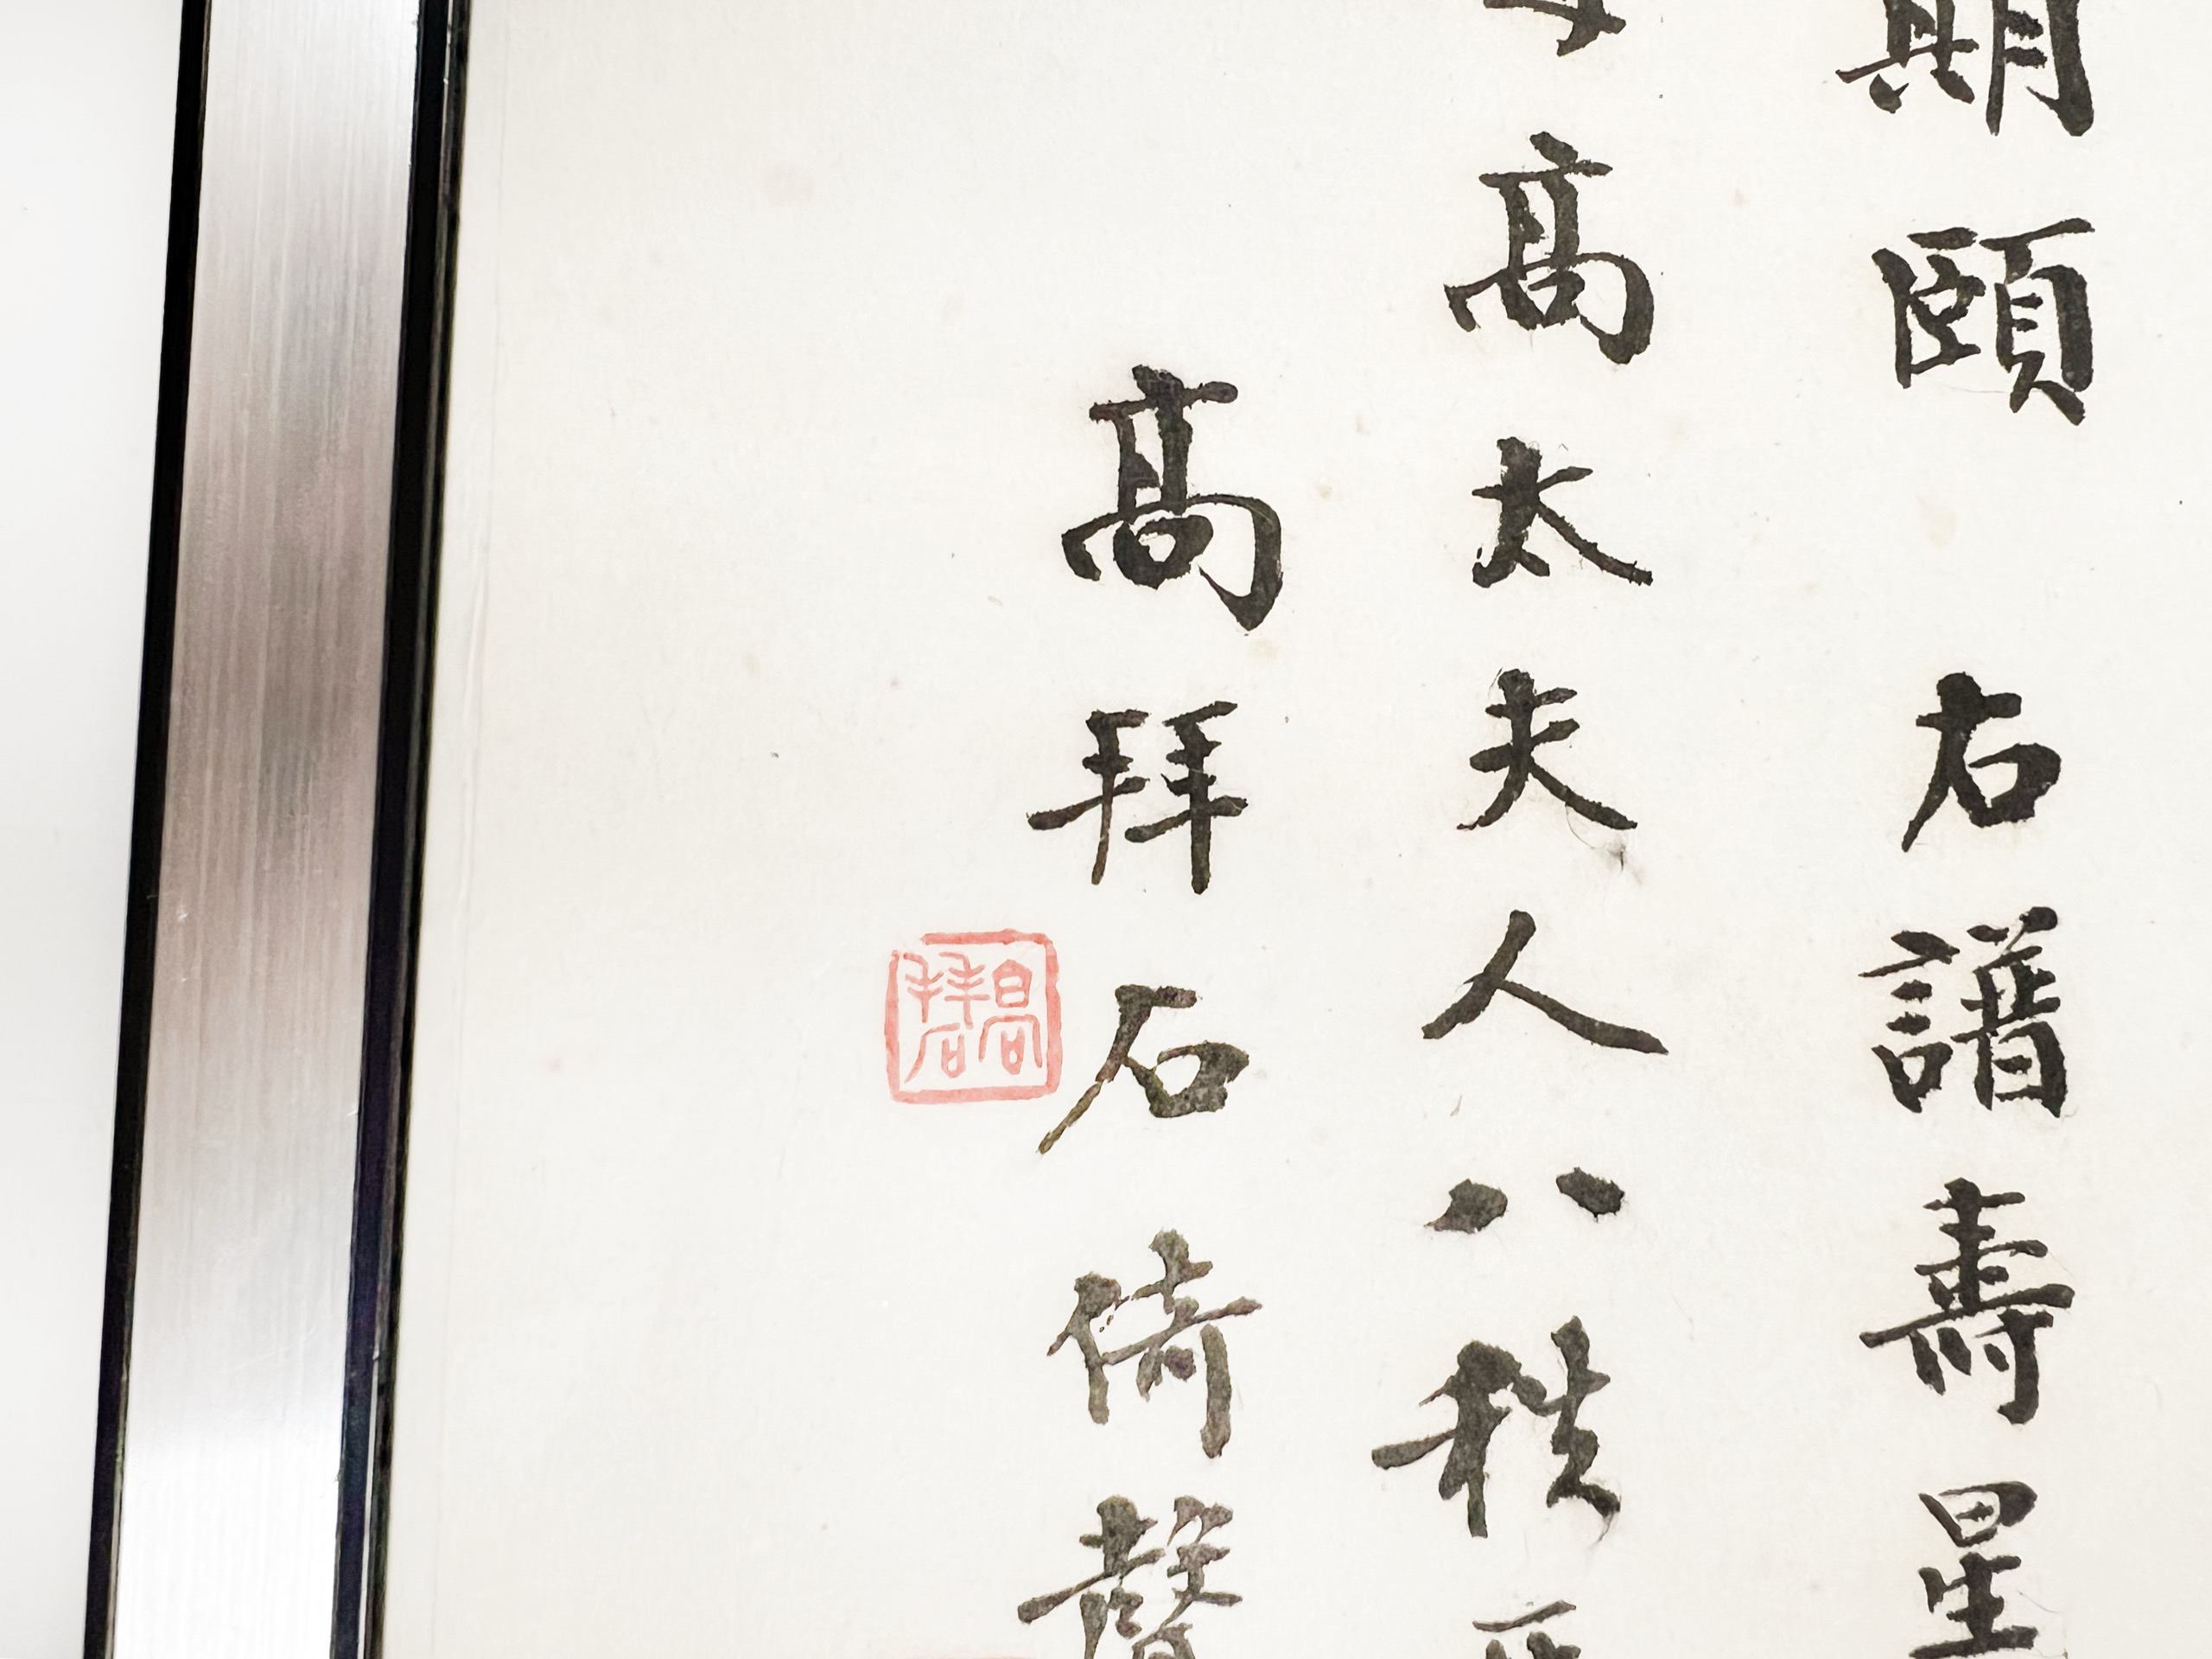 期頤 右譜壽星
高太夫人八秩
高拜石倚聲
高拜石